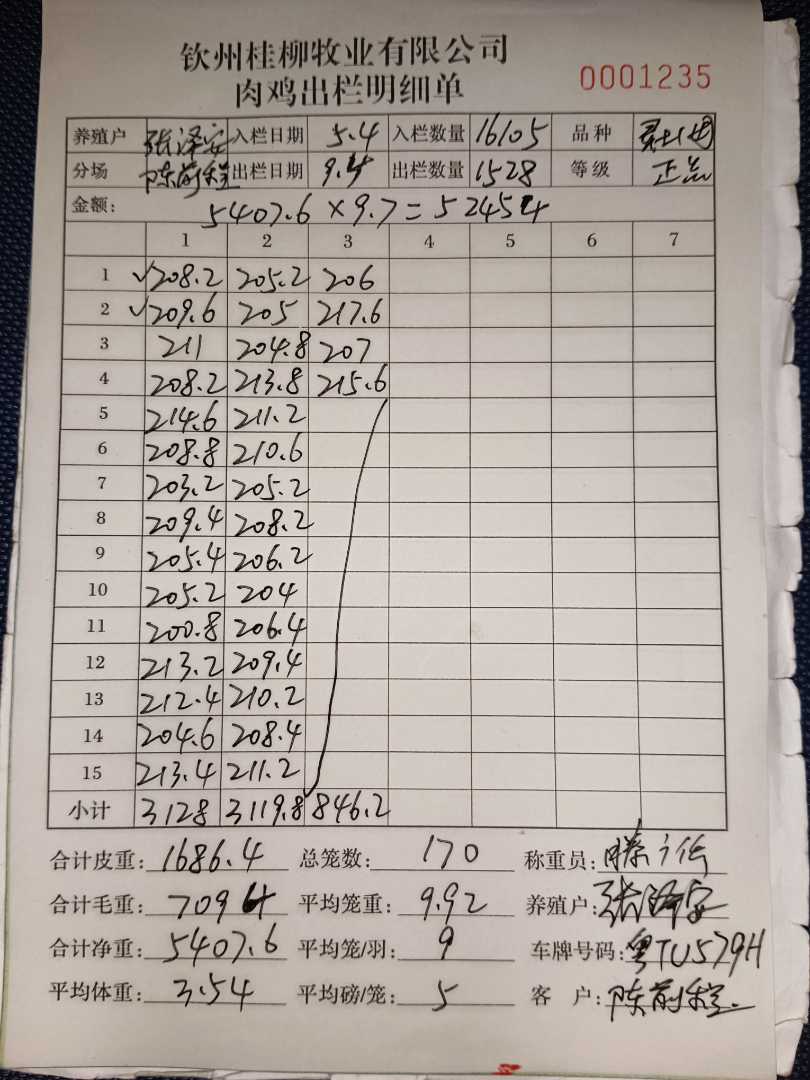 钦州桂柳牧业有限公司
肉鸡出栏明细单 0001235
养殖户 张泽安 入栏日期 5.4 入栏数量 16105 品种
分场 陈前程 出栏日期 9.4 出栏数量 1528 等级 正品
金额: 5407.6×9.7=52454
1 2 3 4 5 6 7
1 ✓208.2 205.2 206
2 ✓209.6 205 217.6
3 211 204.8 207
4 208.2 213.8 215.6
5 214.6 211.2
6 208.8 210.6
7 203.2 205.2
8 209.4 208.2
9 205.4 206.2
10 205.2 204
11 200.8 206.4
12 213.2 209.4
13 212.4 210.2
14 204.6 208.4
15 213.4 211.2
小计 3128 3119.8 846.2
合计皮重: 1686.4 总笼数: 170 称重员:
合计毛重: 7094 平均笼重: 9.92 养殖户: 张泽安
合计净重: 5407.6 平均笼/羽: 9 车牌号码: 粤TU579H
平均体重: 3.54 平均磅/笼: 5 客户: 陈前程